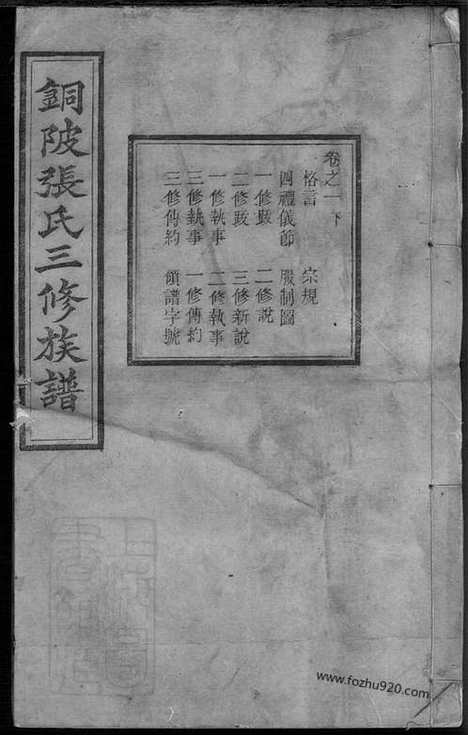 銅陂張氏三修族譜
卷之一下
恪言 宗規
四禮儀節 服制圖
一修跋 二修說
二修跋 三修新說
一修執事 二修執事
三修執事 一修傳約
三修傳約 領譜字號
www.fozhu920.com